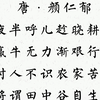 唐·颜仁郁
夜半呼儿趁晓耕
羸牛无力渐艰行
时人不识农家苦
将谓田中谷自生